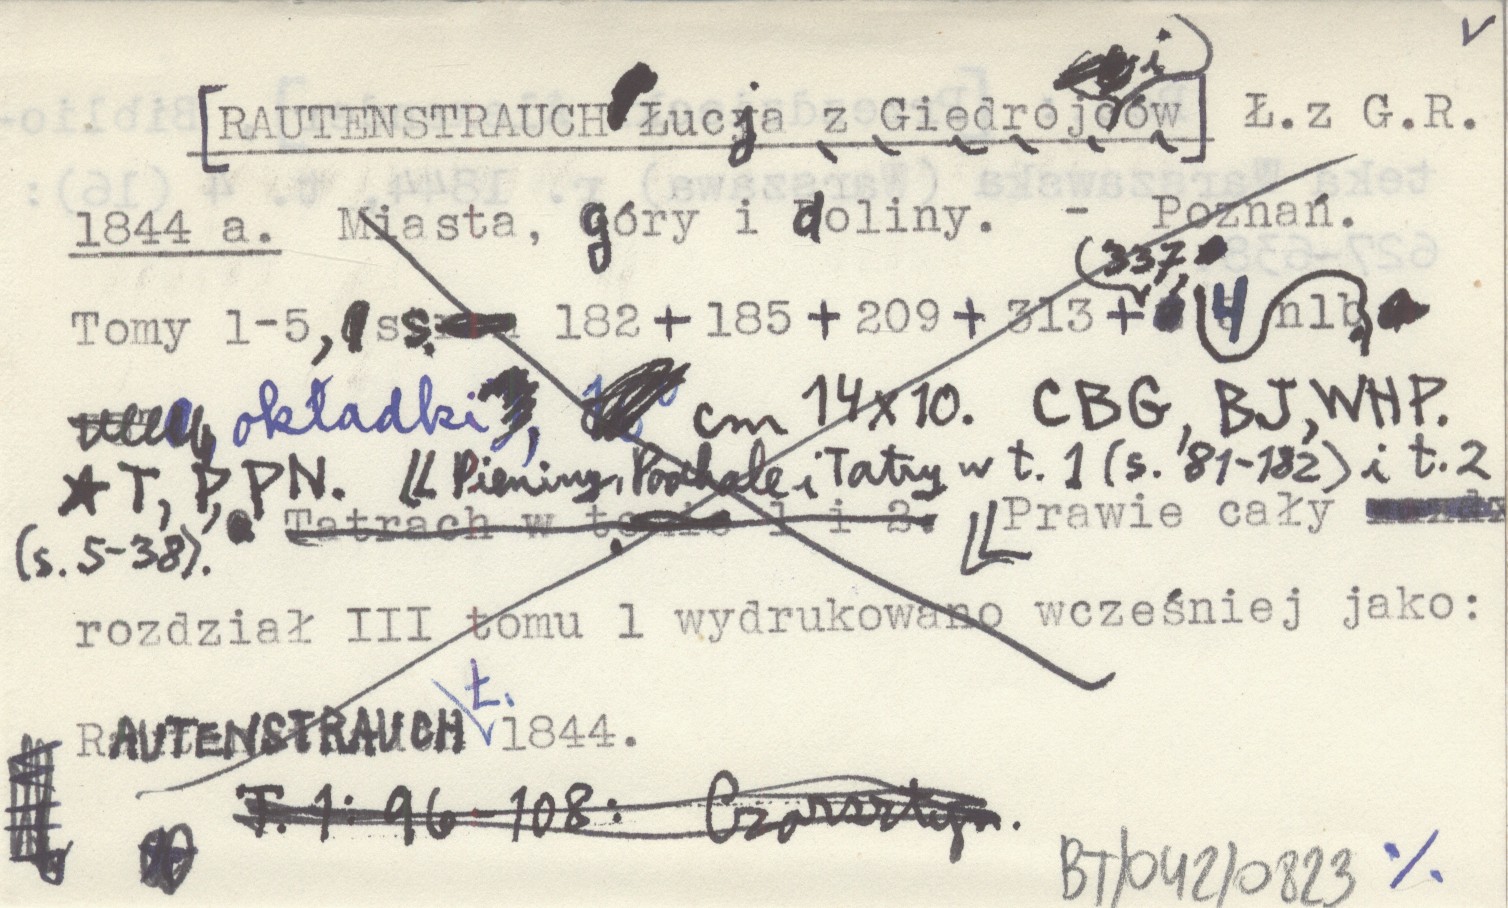 [RAUTENSTRAUCH Łucja z Giedrojciów] Ł.z G.R.
1844 a. Miasta, góry i doliny. - Poznań.
(337
Tomy 1-5, s. 182 + 185 + 209 + 313 + 4 nlb,
okładki, cm 14x10. CBG, BJ, WHP.
* T, P, PPN. Pieniny, Podhale i Tatry w t. 1 (s. 81-182) i t. 2
(s. 5-38). Tatrach w tomie 1 i 2. Prawie cały
rozdział III tomu 1 wydrukowano wcześniej jako:
RAUTENSTRAUCH Ł. 1844.
T. 1: 96-108: Czorsztyn.
BT/042/0823 %